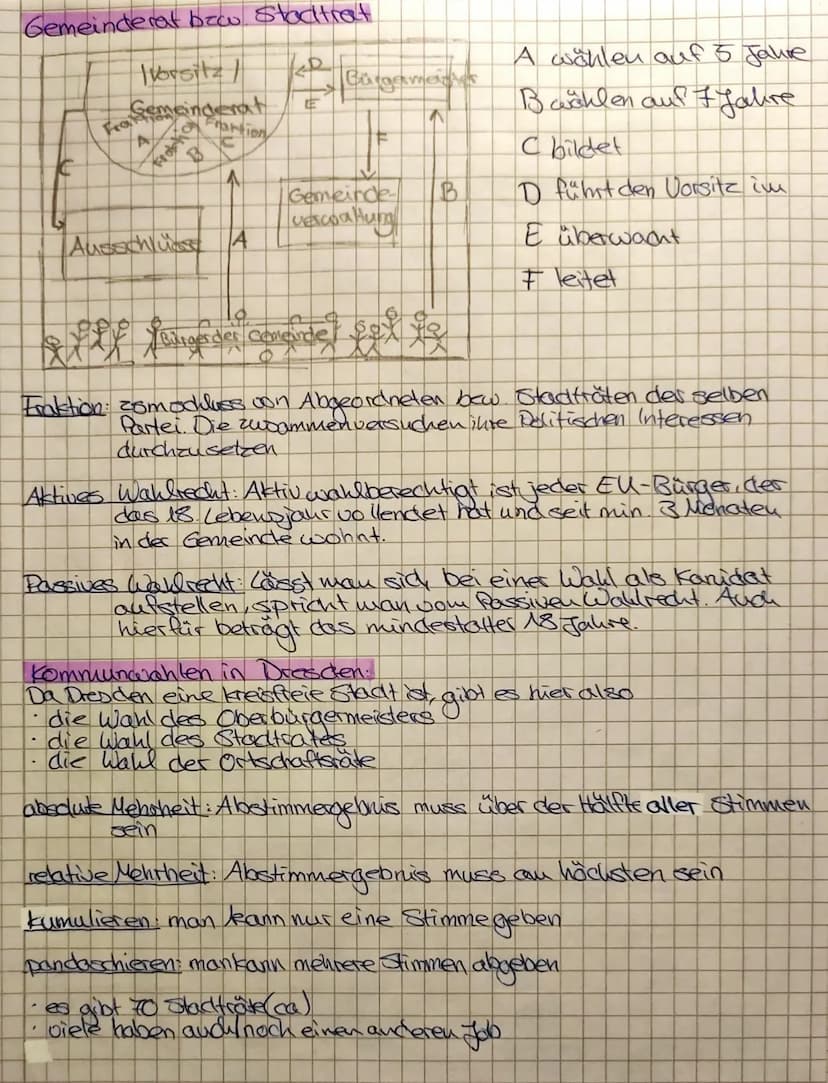 Gemeinderat bzw Stadtrat
| Vorsitz |
Gemeinderat
Fraktion A
Fraktion B
Fraktion C
D
E
Bürgermeister
F
C
Gemeinde-
verwaltung
B
Ausschlüsse
A
Bürger der Gemeinde
A wählen auf 5 Jahre
B wählen auf 7 Jahre
C bildet
D führt den Vorsitz im
E überwacht
F leitet
Fraktion: von Abgeordneten bzw. Stadträten der selben
Partei. Die zusammen versuchen ihre Politischen Interessen
durchzusetzen
Aktives Wahlrecht: Aktiv wahlberechtigt ist jeder EU-Bürger, der
das 18 Lebensjahr vollendet hat und seit min. 3 Monaten
in der Gemeinde wohnt.
Passives Wahlrecht: Lässt man sich bei einer Wahl als Kanidat
aufstellen, spricht man vom Passiven Wahlrecht. Auch
hierfür beträgt das mindestalter 18 Jahre.
Kommunwahlen in Dresden:
Da Dresden eine kreisfreie Stadt ist, gibt es hier also
· die Wahl des Oberbürgermeisters
· die Wahl des Stadtrates
· die Wahl der Ortschaftsräte
absolute Mehrheit: Abstimmergebnis muss über der Hälfte aller Stimmen
sein
relative Mehrheit: Abstimmergebnis muss am höchsten sein
kumulieren: man kann nur eine Stimme geben
pandaschieren: man kann mehrere Stimmen abgeben
· es gibt 70 Stadträte (ca)
· viele haben auch noch einen anderen Job